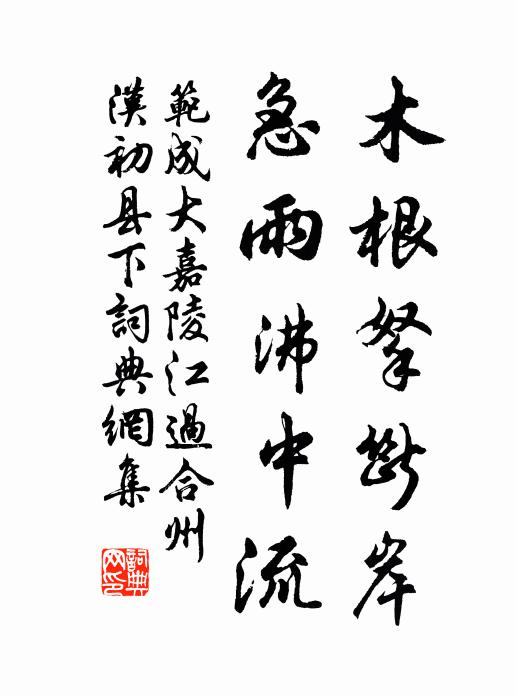 木根拏斷岸
急雨沸中流
範成大嘉陵江過合州
漢初县下詞典網集
詞典
网印